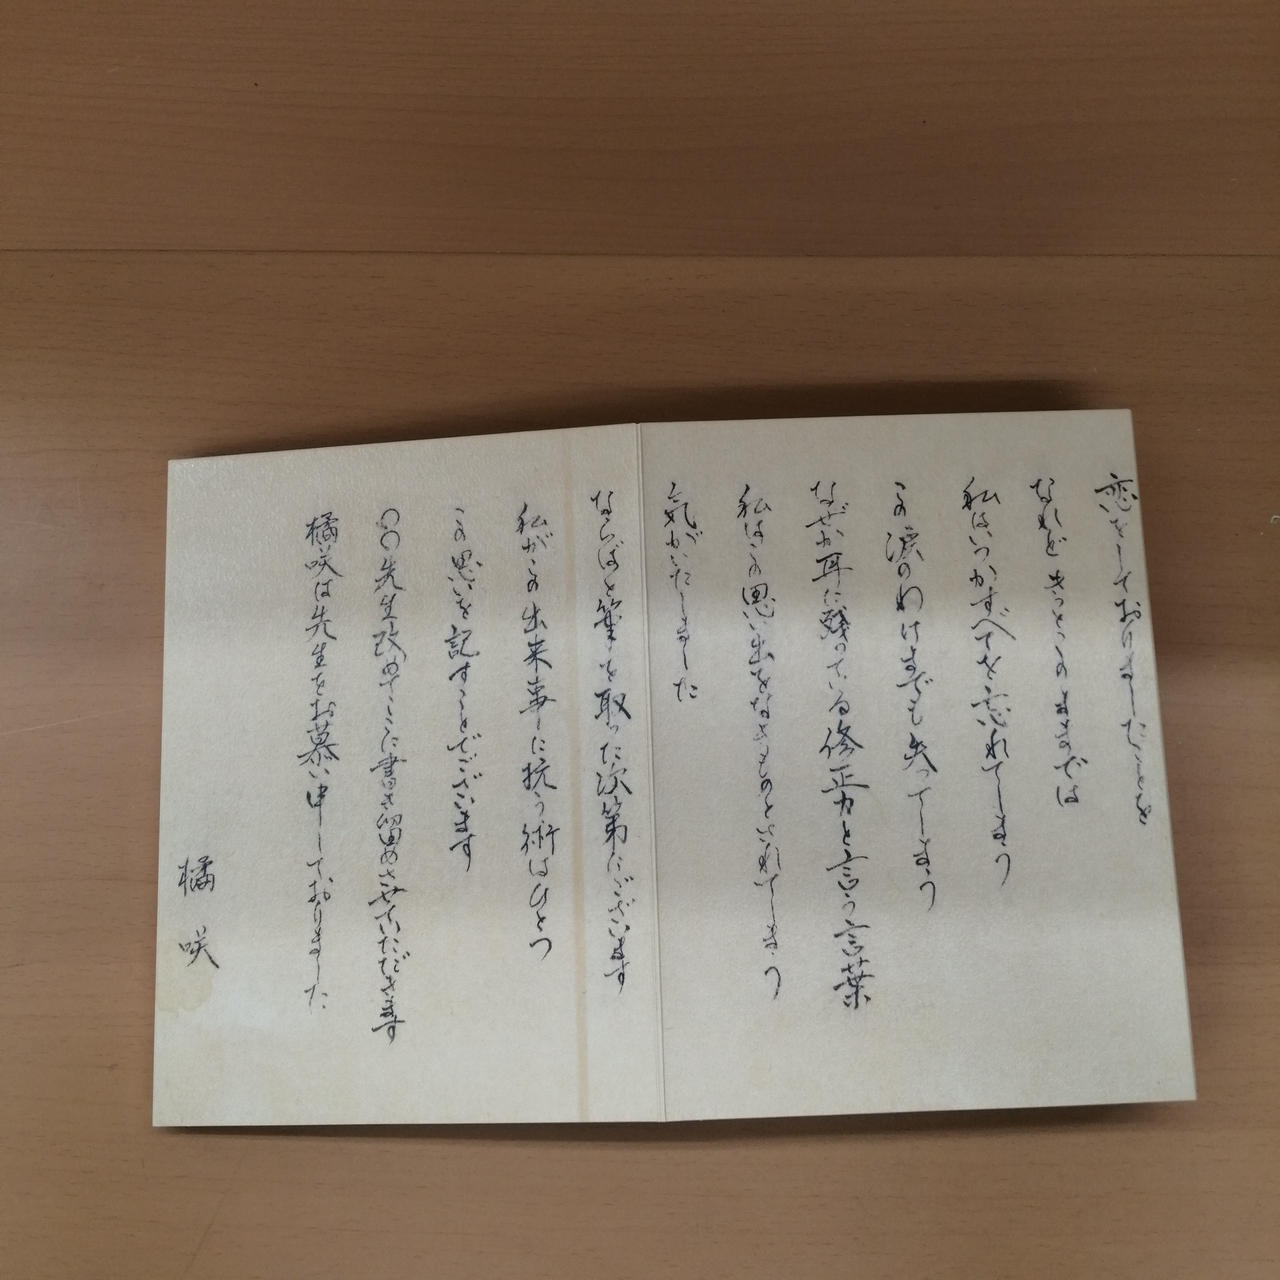 恋をしておりましたことを
なれどきっとこのままでは
私はいつかすべてを忘れてしまう
この涙のわけまでも失ってしまう
なぜか耳に残っている修正力と言う言葉
私はこの思い出をなきものとされてしまう
気がいたしました
ならばと筆を取った次第にございます
私がこの出来事に抗う術はひとつ
この思いを記すことでございます
〇〇先生改めてここに書き留めさせていただきます
橘咲は先生をお慕い申しておりました
橘咲